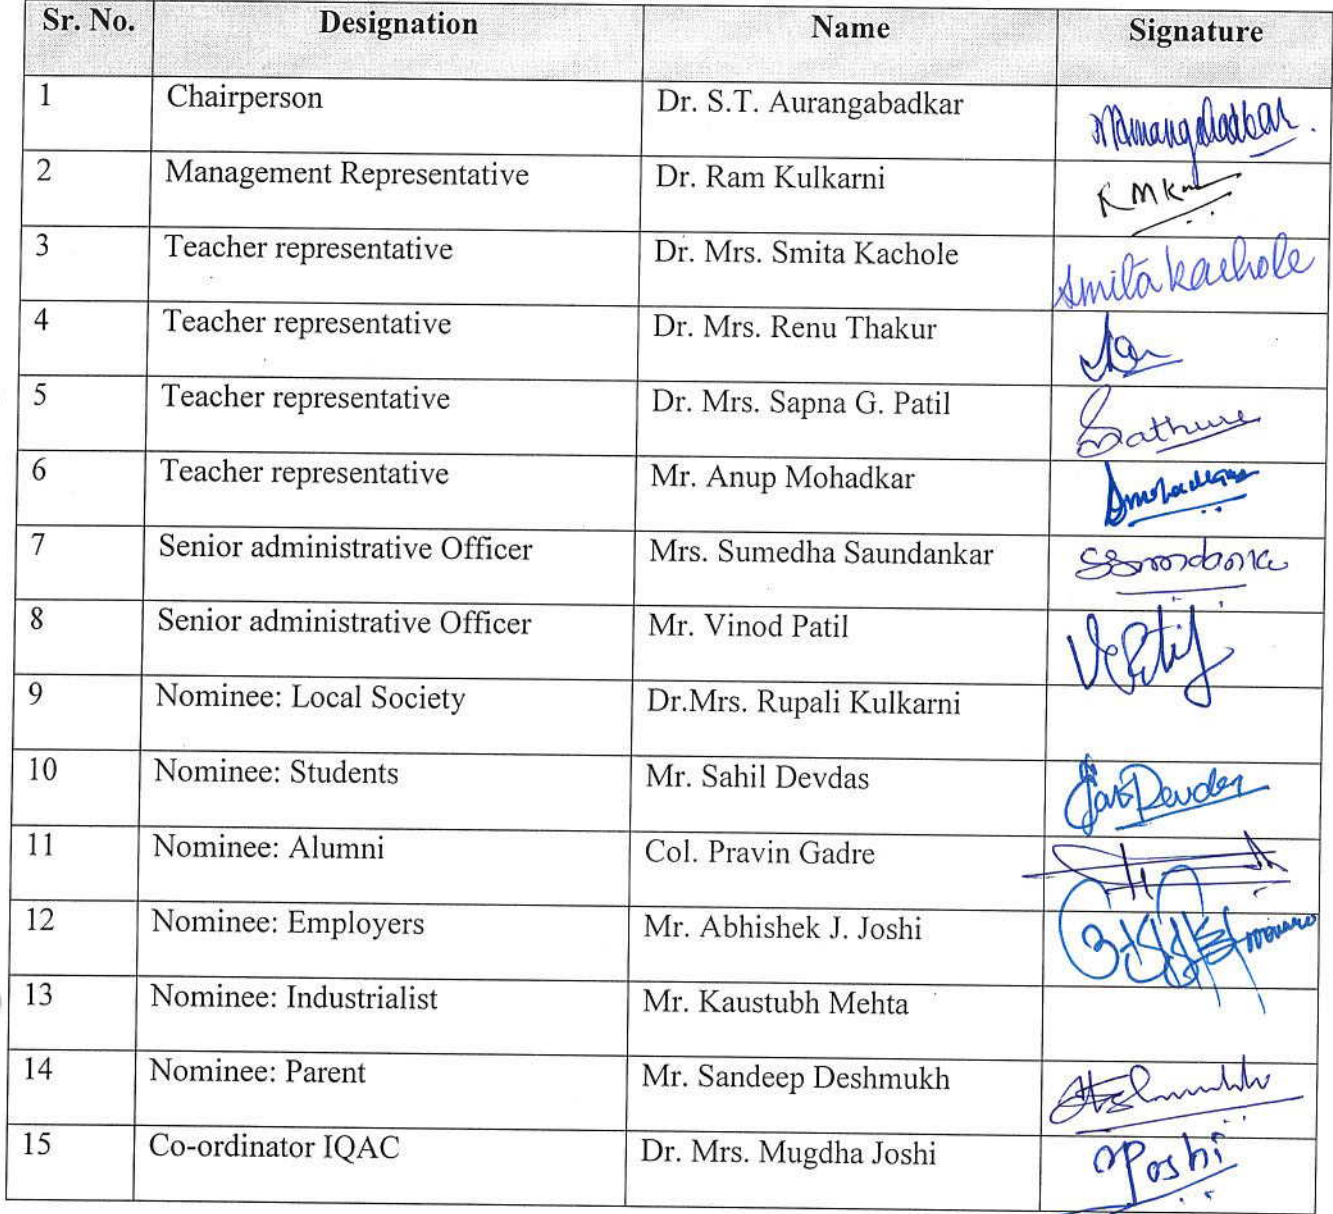 Sr. No. Designation Name Signature
1 Chairperson Dr. S.T. Aurangabadkar
2 Management Representative Dr. Ram Kulkarni RMK
3 Teacher representative Dr. Mrs. Smita Kachole Smita Kachole
4 Teacher representative Dr. Mrs. Renu Thakur
5 Teacher representative Dr. Mrs. Sapna G. Patil
6 Teacher representative Mr. Anup Mohadkar
7 Senior administrative Officer Mrs. Sumedha Saundankar
8 Senior administrative Officer Mr. Vinod Patil
9 Nominee: Local Society Dr.Mrs. Rupali Kulkarni
10 Nominee: Students Mr. Sahil Devdas
11 Nominee: Alumni Col. Pravin Gadre
12 Nominee: Employers Mr. Abhishek J. Joshi
13 Nominee: Industrialist Mr. Kaustubh Mehta
14 Nominee: Parent Mr. Sandeep Deshmukh
15 Co-ordinator IQAC Dr. Mrs. Mugdha Joshi